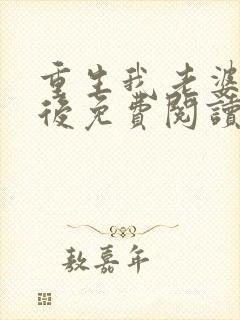 重生我老婆
後免費閱讀
敖嘉年